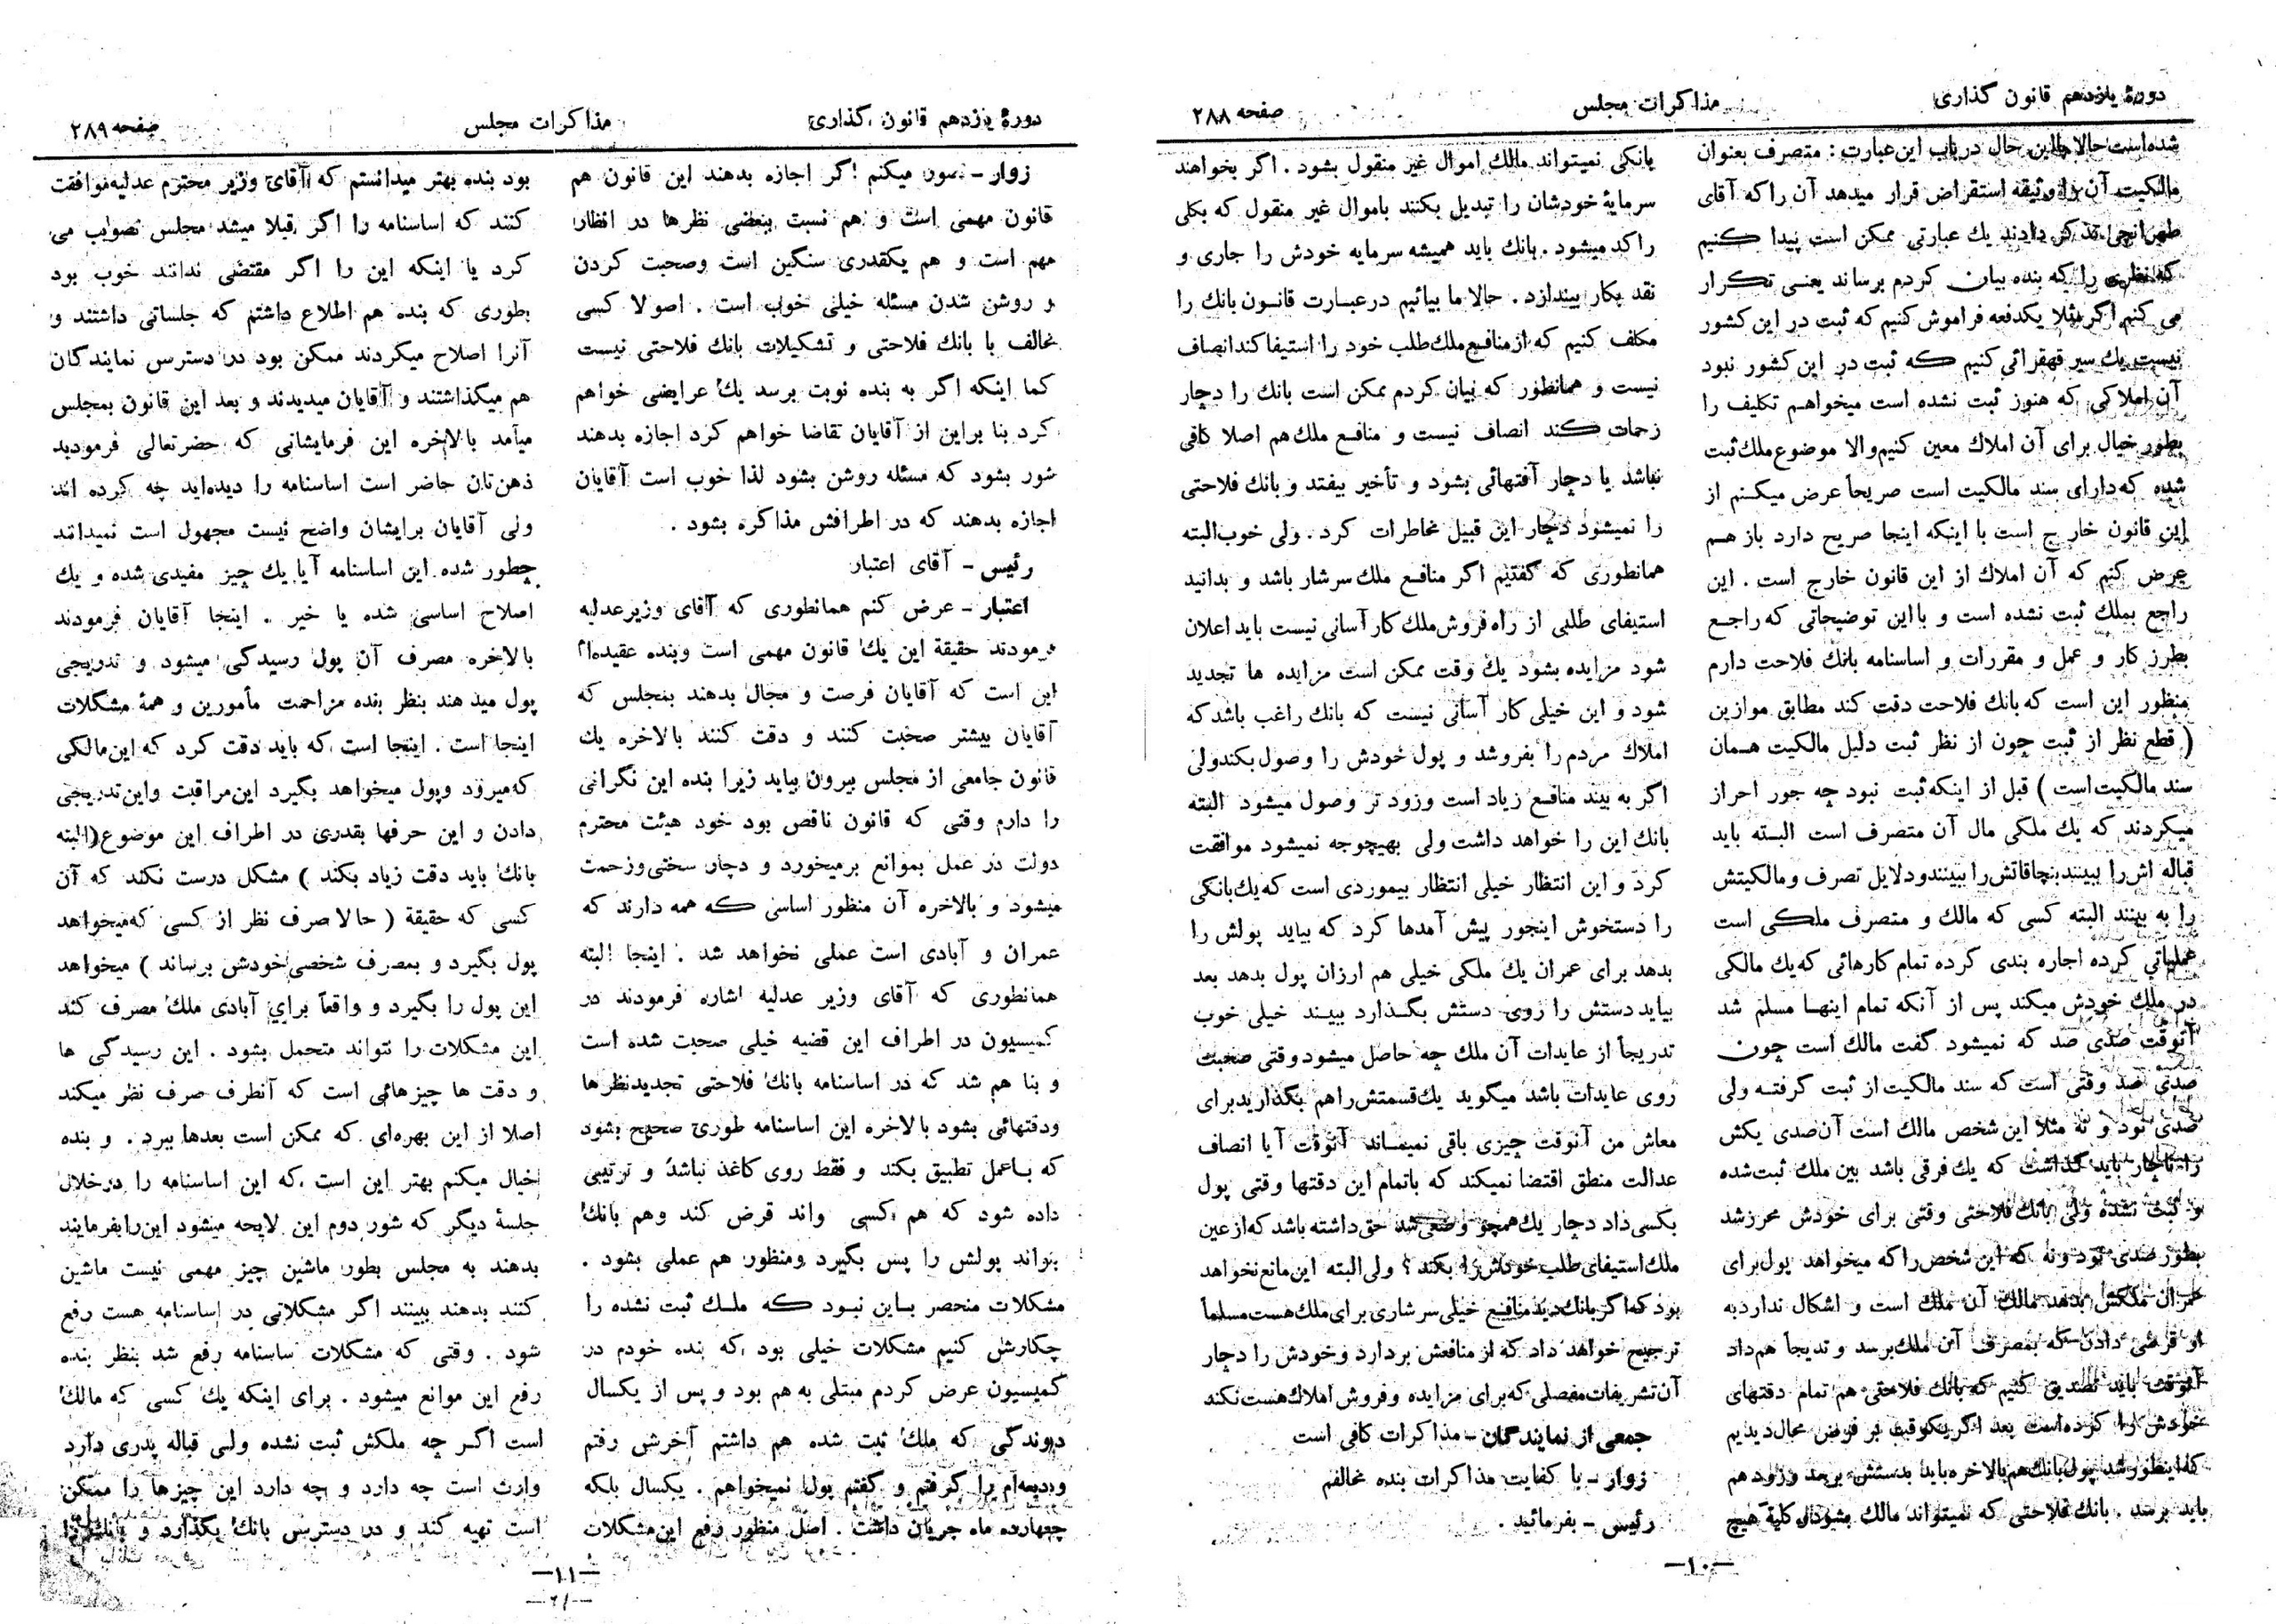 دورهٔ یازدهم قانون گذاری
مذاکرات مجلس
صفحه ۲۸۸
شده است حالا با این حال در باب این عبارت : متصرف بعنوان
مالکیت آن را وثیقه استقراض قرار میدهد آن را که آقای
طهرانچی تذکر دادند یك عبارتی ممکن است پیدا کنیم
که نظری را که بنده بیان کردم برساند یعنی تکرار
می کنم اگر مثلا یکدفعه فراموش کنیم که ثبت در این کشور
نیست یك سیر قهقرائی کنیم که ثبت در این کشور نبود
آن املاکی که هنوز ثبت نشده است میخواهم تکلیف را
بطور خیال برای آن املاك معین کنیم والا موضوع ملك ثبت
شده که دارای سند مالکیت است صریحاً عرض میکنم از
این قانون خارج است با اینکه اینجا صریح دارد باز هم
عرض کنم که آن املاك از این قانون خارج است . این
راجع بملك ثبت نشده است و با این توضیحاتی که راجع
بطرز کار و عمل و مقررات و اساسنامه بانك فلاحت دارم
منظور این است که بانك فلاحت دقت کند مطابق موازین
( قطع نظر از ثبت چون از نظر ثبت دلیل مالکیت همان
سند مالکیت است ) قبل از اینکه ثبت نبود چه جور احراز
میکردند که یك ملکی مال آن متصرف است البته باید
قباله اش را ببینند بنچاقاتش را ببینند و دلایل تصرف و مالکیتش
را به بینند البته کسی که مالك و متصرف ملکی است
عملیاتی کرده اجاره بندی کرده تمام کارهائی که یك مالکی
در ملك خودش میکند پس از آنکه تمام اینها مسلم شد
آنوقت صدی صد که نمیشود گفت مالك است چون
صدی صد وقتی است که سند مالکیت از ثبت گرفته ولی
صدی نود و نه مثلا این شخص مالك است آن صدی یکش
را ناچار باید گذاشت که یك فرقی باشد بین ملك ثبت شده
و ثبت نشده ولی بانك فلاحتی وقتی برای خودش محرز شد
بطور صدی نود و نه که این شخص را که میخواهد پول برای
عمران ملکش بدهد مالك آن ملك است و اشکال ندارد به
او قرضی دادن که بمصرف آن ملك برسد و تدیجاً هم داد
آنوقت باید تصدیق کنیم که بانك فلاحتی هم تمام دقتهای
خودش را کرده است بعد اگر یکوقت بر فرض محال دیدیم
که اینطور شد پول بانك هم بالاخره باید بدستش برسد و زود هم
باید برسد . بانك فلاحتی که نمیتواند مالك بشود کلیة هیچ
بانکی نمیتواند مالك اموال غیر منقول بشود . اگر بخواهند
سرمایهٔ خودشان را تبدیل بکنند باموال غیر منقول که بکلی
راکد میشود . بانك باید همیشه سرمایه خودش را جاری و
نقد بکار بیندازد . حالا ما بیائیم در عبارت قانون بانك را
مکلف کنیم که از منافع ملك طلب خود را استیفا کند انصاف
نیست و همانطور که بیان کردم ممکن است بانك را دچار
زحمات کند انصاف نیست و منافع ملك هم اصلا کافی
نباشد یا دچار آفتهائی بشود و تأخیر بیفتد و بانك فلاحتی
را نمیشود دچار این قبیل مخاطرات کرد . ولی خوب البته
همانطوری که گفتیم اگر منافع ملك سرشار باشد و بدانید
استیفای طلبی از راه فروش ملك کار آسانی نیست باید اعلان
شود مزایده بشود یك وقت ممکن است مزایده ها تجدید
شود و این خیلی کار آسانی نیست که بانك راغب باشد که
املاك مردم را بفروشد و پول خودش را وصول بکند ولی
اگر به بیند منافع زیاد است وزود تر وصول میشود البته
بانك این را خواهد داشت ولی بهیچوجه نمیشود موافقت
کرد و این انتظار خیلی انتظار بیموردی است که یك بانکی
را دستخوش اینجور پیش آمدها کرد که بیاید پولش را
بدهد برای عمران یك ملکی خیلی هم ارزان پول بدهد بعد
بیاید دستش را روی دستش بگذارد ببیند خیلی خوب
تدریجاً از عایدات آن ملك چه حاصل میشود وقتی صحبت
روی عایدات باشد میگوید یك قسمتش را هم بگذارید برای
معاش من آنوقت چیزی باقی نمیماند آنوقت آیا انصاف
عدالت منطق اقتضا نمیکند که باتمام این دقتها وقتی پول
بکسی داد دچار یك همچو وضعی شد حق داشته باشد که از عین
ملك استیفای طلب خودش را بکند ؟ ولی البته این مانع نخواهد
بود که اگر بانك دید منافع خیلی سرشاری برای ملك هست مسلماً
ترجیح خواهد داد که از منافعش بردارد و خودش را دچار
آن تشریفات مفصلی که برای مزایده و فروش املاك هست نکند
جمعی از نمایندگان - مذاکرات کافی است
زوار - با کفایت مذاکرات بنده مخالفم
رئیس - بفرمائید .
—۱۰—
دورهٔ یازدهم قانون گذاری
مذاکرات مجلس
صفحه ۲۸۹
زوار - تصور میکنم اگر اجازه بدهند این قانون هم
قانون مهمی است و هم نسبت ببعضی نظرها در انظار
مهم است و هم یکقدری سنگین است وصحبت کردن
و روشن شدن مسئله خیلی خوب است . اصولا کسی
مخالف با بانك فلاحتی و تشکیلات بانك فلاحتی نیست
کما اینکه اگر به بنده نوبت برسد یك عرایضی خواهم
کرد بنا براین از آقایان تقاضا خواهم کرد اجازه بدهند
شور بشود که مسئله روشن بشود لذا خوب است آقایان
اجازه بدهند که در اطرافش مذاکره بشود .
رئیس - آقای اعتبار
اعتبار - عرض کنم همانطوری که آقای وزیر عدلیه
فرمودند حقیقة این یك قانون مهمی است وبنده عقیده ام
این است که آقایان فرصت و مجال بدهند بمجلس که
آقایان بیشتر صحبت کنند و دقت کنند بالاخره یك
قانون جامعی از مجلس بیرون بیاید زیرا بنده این نگرانی
را دارم وقتی که قانون ناقص بود خود هیئت محترم
دولت در عمل بموانع برمیخورد و دچار سختی وزحمت
میشود و بالاخره آن منظور اساسی که همه دارند که
عمران و آبادی است عملی نخواهد شد . اینجا البته
همانطوری که آقای وزیر عدلیه اشاره فرمودند در
کمیسیون در اطراف این قضیه خیلی صحبت شده است
و بنا هم شد که در اساسنامه بانك فلاحتی تجدیدنظرها
ودقتهائی بشود بالاخره این اساسنامه طوری صحیح بشود
که باعمل تطبیق بکند و فقط روی کاغذ نباشد و ترتیبی
داده شود که هم کسی واند قرض کند وهم بانك
بتواند پولش را پس بگیرد ومنظور هم عملی بشود .
مشکلات منحصر باین نبود که ملك ثبت نشده را
چکارش کنیم مشکلات خیلی بود که بنده خودم در
کمیسیون عرض کردم مبتلی به هم بود و پس از یکسال
دوندگی که ملك ثبت شده هم داشتم آخرش رفتم
ودیعه ام را گرفتم و گفتم پول نمیخواهم . یکسال بلکه
چهارده ماه جریان داشت . اصل منظور رفع این مشکلات
بود بنده بهتر میدانستم که آقای وزیر محترم عدلیه موافقت
کنند که اساسنامه را اگر قبلا میشد مجلس تصویب می
کرد یا اینکه این را اگر مقتضی ندانند خوب بود
بطوری که بنده هم اطلاع داشتم که جلساتی داشتند و
آنرا اصلاح میکردند ممکن بود در دسترس نمایندگان
هم میگذاشتند و آقایان میدیدند و بعد این قانون بمجلس
میآمد بالاخره این فرمایشاتی که حضرتعالی فرمودید
ذهن تان حاضر است اساسنامه را دیده اید چه کرده اند
ولی آقایان برایشان واضح نیست مجهول است نمیدانند
چطور شده این اساسنامه آیا یك چیز مفیدی شده و یك
اصلاح اساسی شده یا خیر . اینجا آقایان فرمودند
بالاخره مصرف آن پول رسیدگی میشود و تدریجی
پول میدهند بنظر بنده مزاحمت مأمورین و همهٔ مشکلات
اینجا است . اینجا است که باید دقت کرد که این مالکی
که میرود وپول میخواهد بگیرد این مراقبت واین تدریجی
دادن و این حرفها بقدری در اطراف این موضوع (البته
بانك باید دقت زیاد بکند ) مشکل درست نکند که آن
کسی که حقیقة ( حالا صرف نظر از کسی که میخواهد
پول بگیرد و بمصرف شخصی خودش برساند ) میخواهد
این پول را بگیرد و واقعاً برای آبادی ملك مصرف کند
این مشکلات را نتواند متحمل بشود . این رسیدگی ها
و دقت ها چیزهائی است که آنطرف صرف نظر میکند
اصلا از این بهره‌ای که ممکن است بعدها ببرد . و بنده
خیال میکنم بهتر این است که این اساسنامه را در خلال
جلسهٔ دیگر که شور دوم این لایحه میشود این را بفرمایند
بدهند به مجلس بطور ماشین چیز مهمی نیست ماشین
کنند بدهند ببینند اگر مشکلاتی در اساسنامه هست رفع
شود . وقتی که مشکلات ساسنامه رفع شد بنظر بنده
رفع این موانع میشود . برای اینکه یك کسی که مالك
است اگر چه ملکش ثبت نشده ولی قباله پدری دارد
وارث است چه دارد و چه دارد این چیزها را ممکن
است تهیه کند و در دسترس بانك بگذارد و
—۱۱—